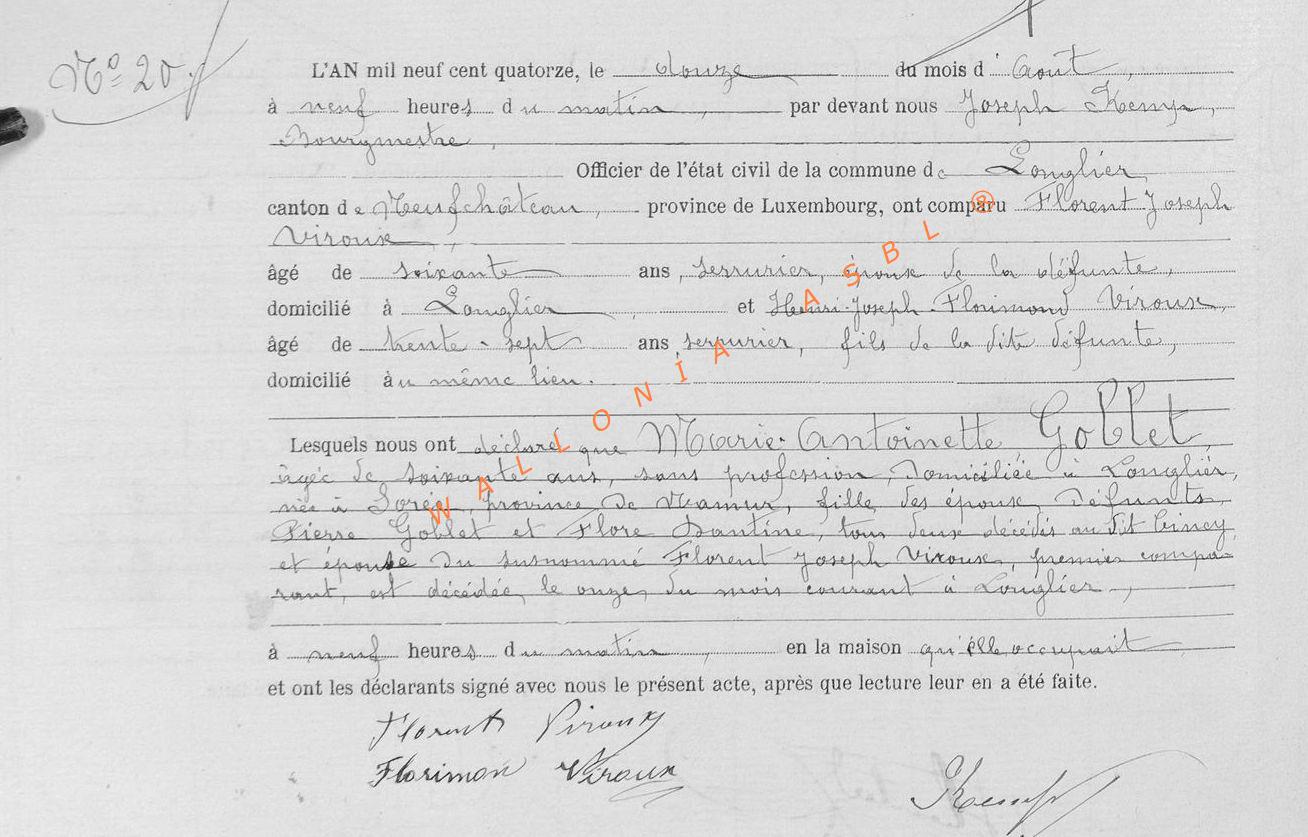 Nº 20
L'AN mil neuf cent quatorze, le douze du mois d'Août,
à neuf heures du matin, par devant nous Joseph Kemp,
Bourgmestre,
Officier de l'état civil de la commune de Longlier
canton de Neufchâteau, province de Luxembourg, ont comparu Florent Joseph
Viroux,
âgé de soixante ans, serrurier, époux de la défunte,
domicilié à Longlier, et Henri-Joseph-Florimond Viroux,
âgé de trente-sept ans, serrurier, fils de la dite défunte,
domicilié au même lieu.
Lesquels nous ont déclaré que Marie-Antoinette Goblet,
âgée de soixante ans, sans profession, domiciliée à Longlier,
née à Sorée, province de Namur, fille des époux défunts
Pierre Goblet et Flore Dantine, tous deux décédés au dit
et épouse du susnommé Florent Joseph Viroux, premier compa-
rant, est décédée, le onze, du mois courant à Longlier,
à neuf heures du matin, en la maison qu'elle occupait
et ont les déclarants signé avec nous le présent acte, après que lecture leur en a été faite.
Florent Viroux
Florimon Viroux
Kemp
WALLONIA ASBL ®